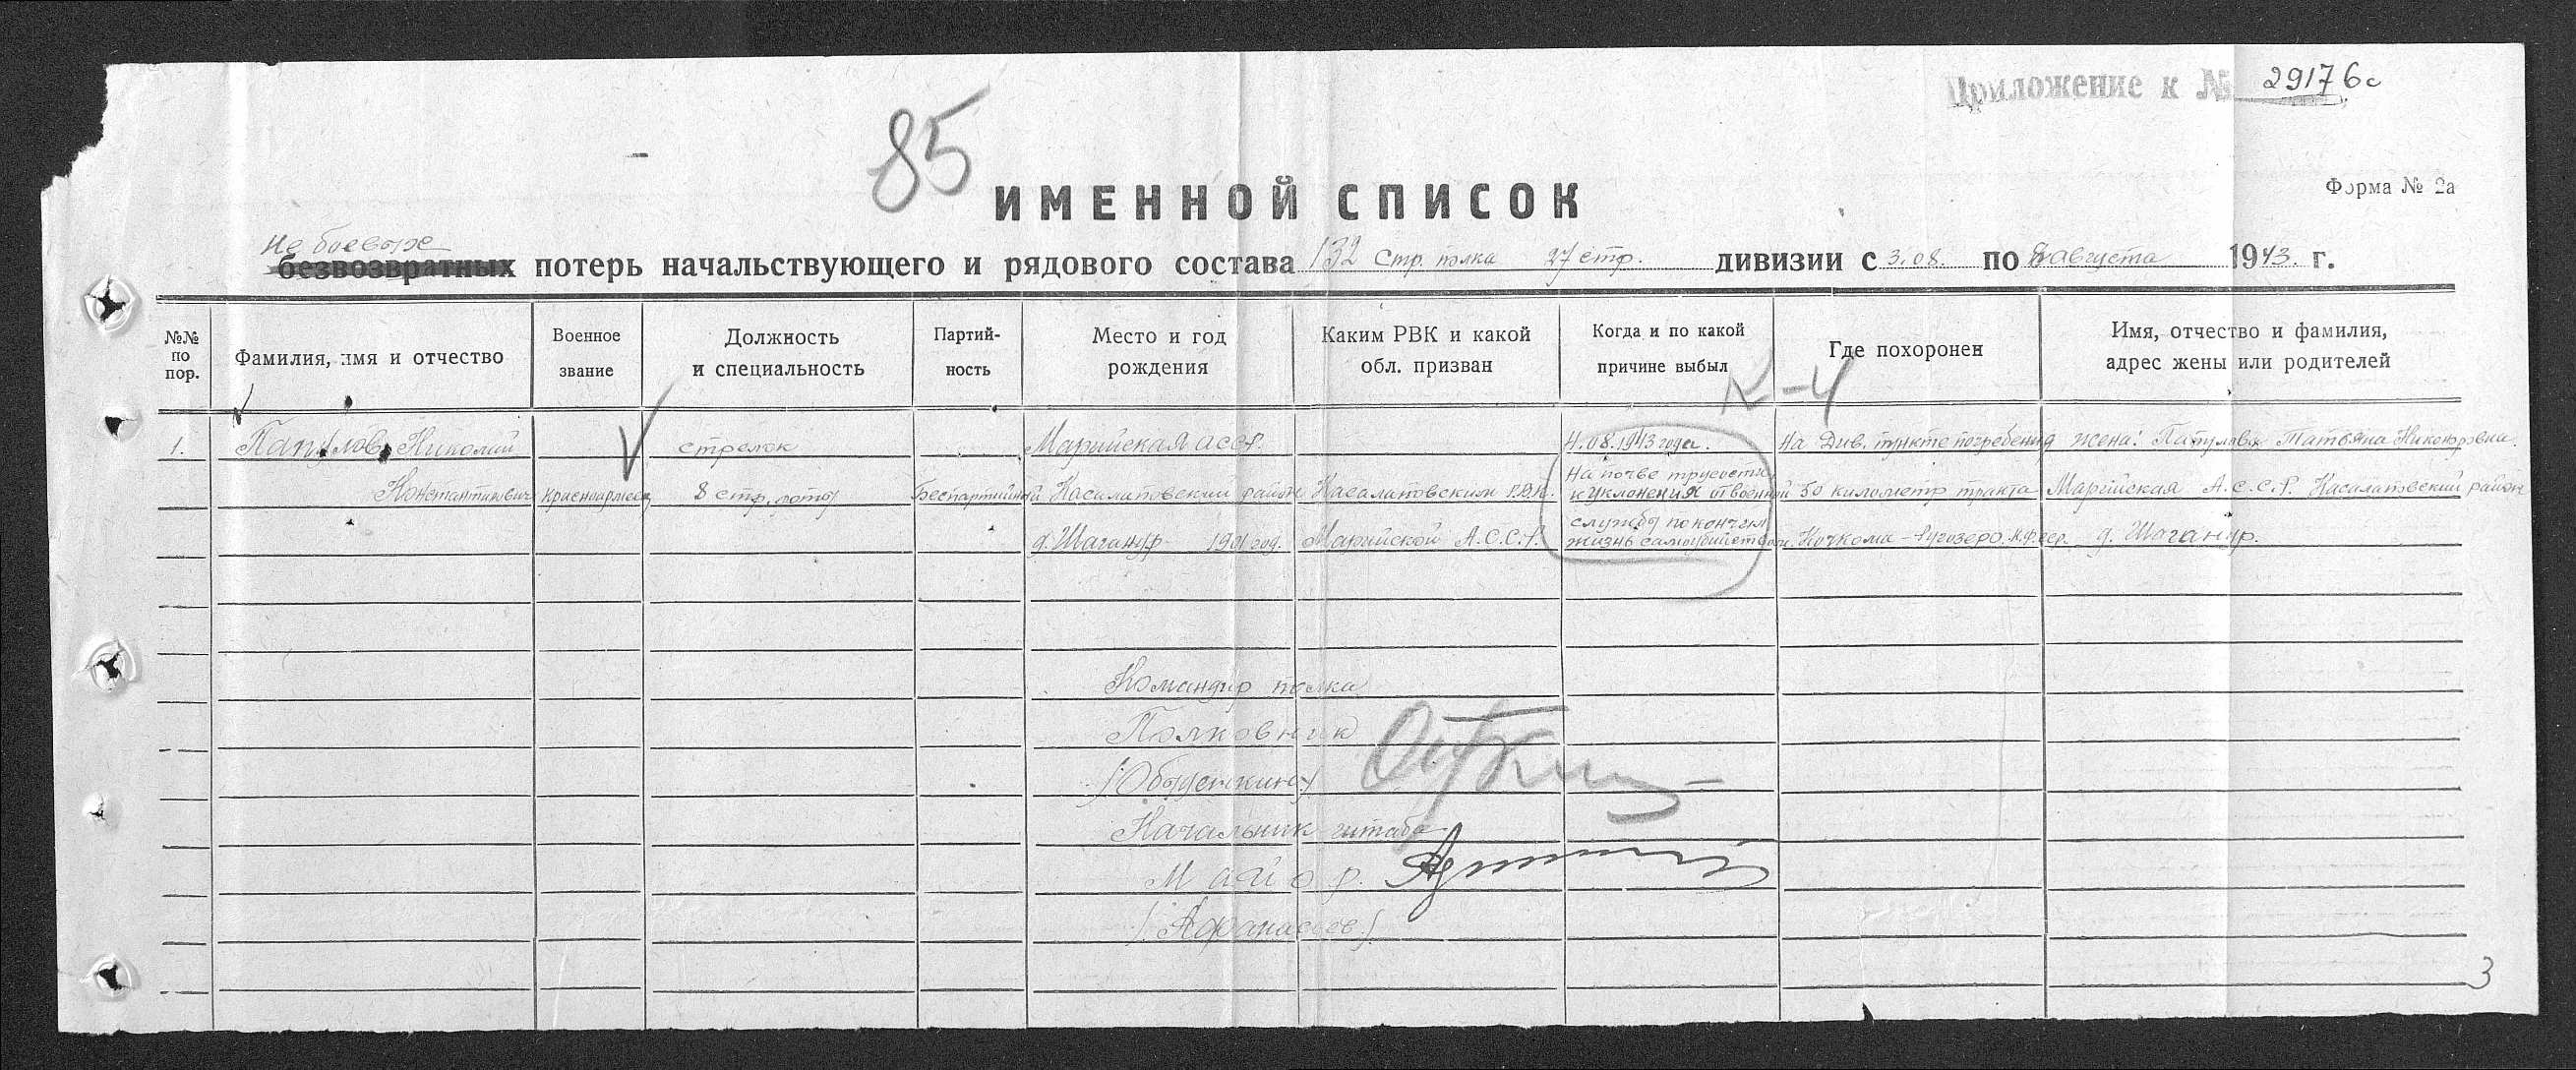 Приложение к № 29176с
85
ИМЕННОЙ СПИСОК
Форма № 2а
Не боевых
безвозвратных потерь начальствующего и рядового состава 132 стр. полка 27 стр. дивизии с 3.08. по 8 августа 1943. г.
№№ по пор.
Фамилия, имя и отчество
Военное звание
Должность и специальность
Партий-ность
Место и год рождения
Каким РВК и какой обл. призван
Когда и по какой причине выбыл
Где похоронен
Имя, отчество и фамилия, адрес жены или родителей
К-4
1. Папулов, Николай стрелок Марийская асср. 4.08.1943 года. На Див. пункте погребения жена: Папулова Татьяна Никоноровна.
Константинович красноармеец 8 стр. роты Беспартийный Касилатовский район Касалатовским РВК. На почве трусости и уклонения от военной 50 километр тракта Марийская А.С.С.Р. Касалатовский район
д. Шаганур 1901 год. Марийской А.С.С.Р. службы покончил жизнь самоубийством. Кочкома - Ругозеро. К.Ф.сср. д. Шаганур.
Командир полка
Полковник
/Обыденкин/
Начальник штаба
Майор.
/Афанасьев/
3